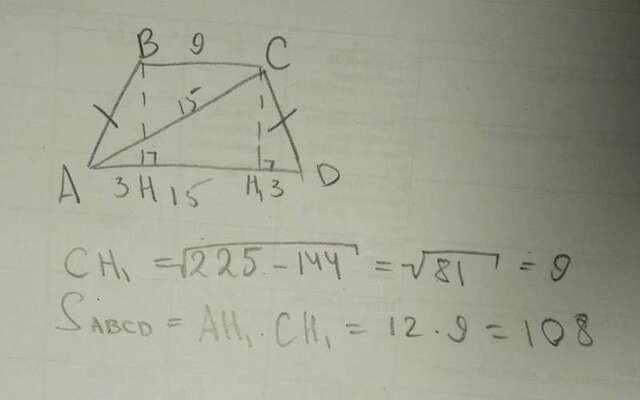 B 9 C
15
A 3 H 15 H₁ 3 D
CH₁ = √225 - 144 = √81 = 9
S ABCD = AH₁ · CH₁ = 12 · 9 = 108